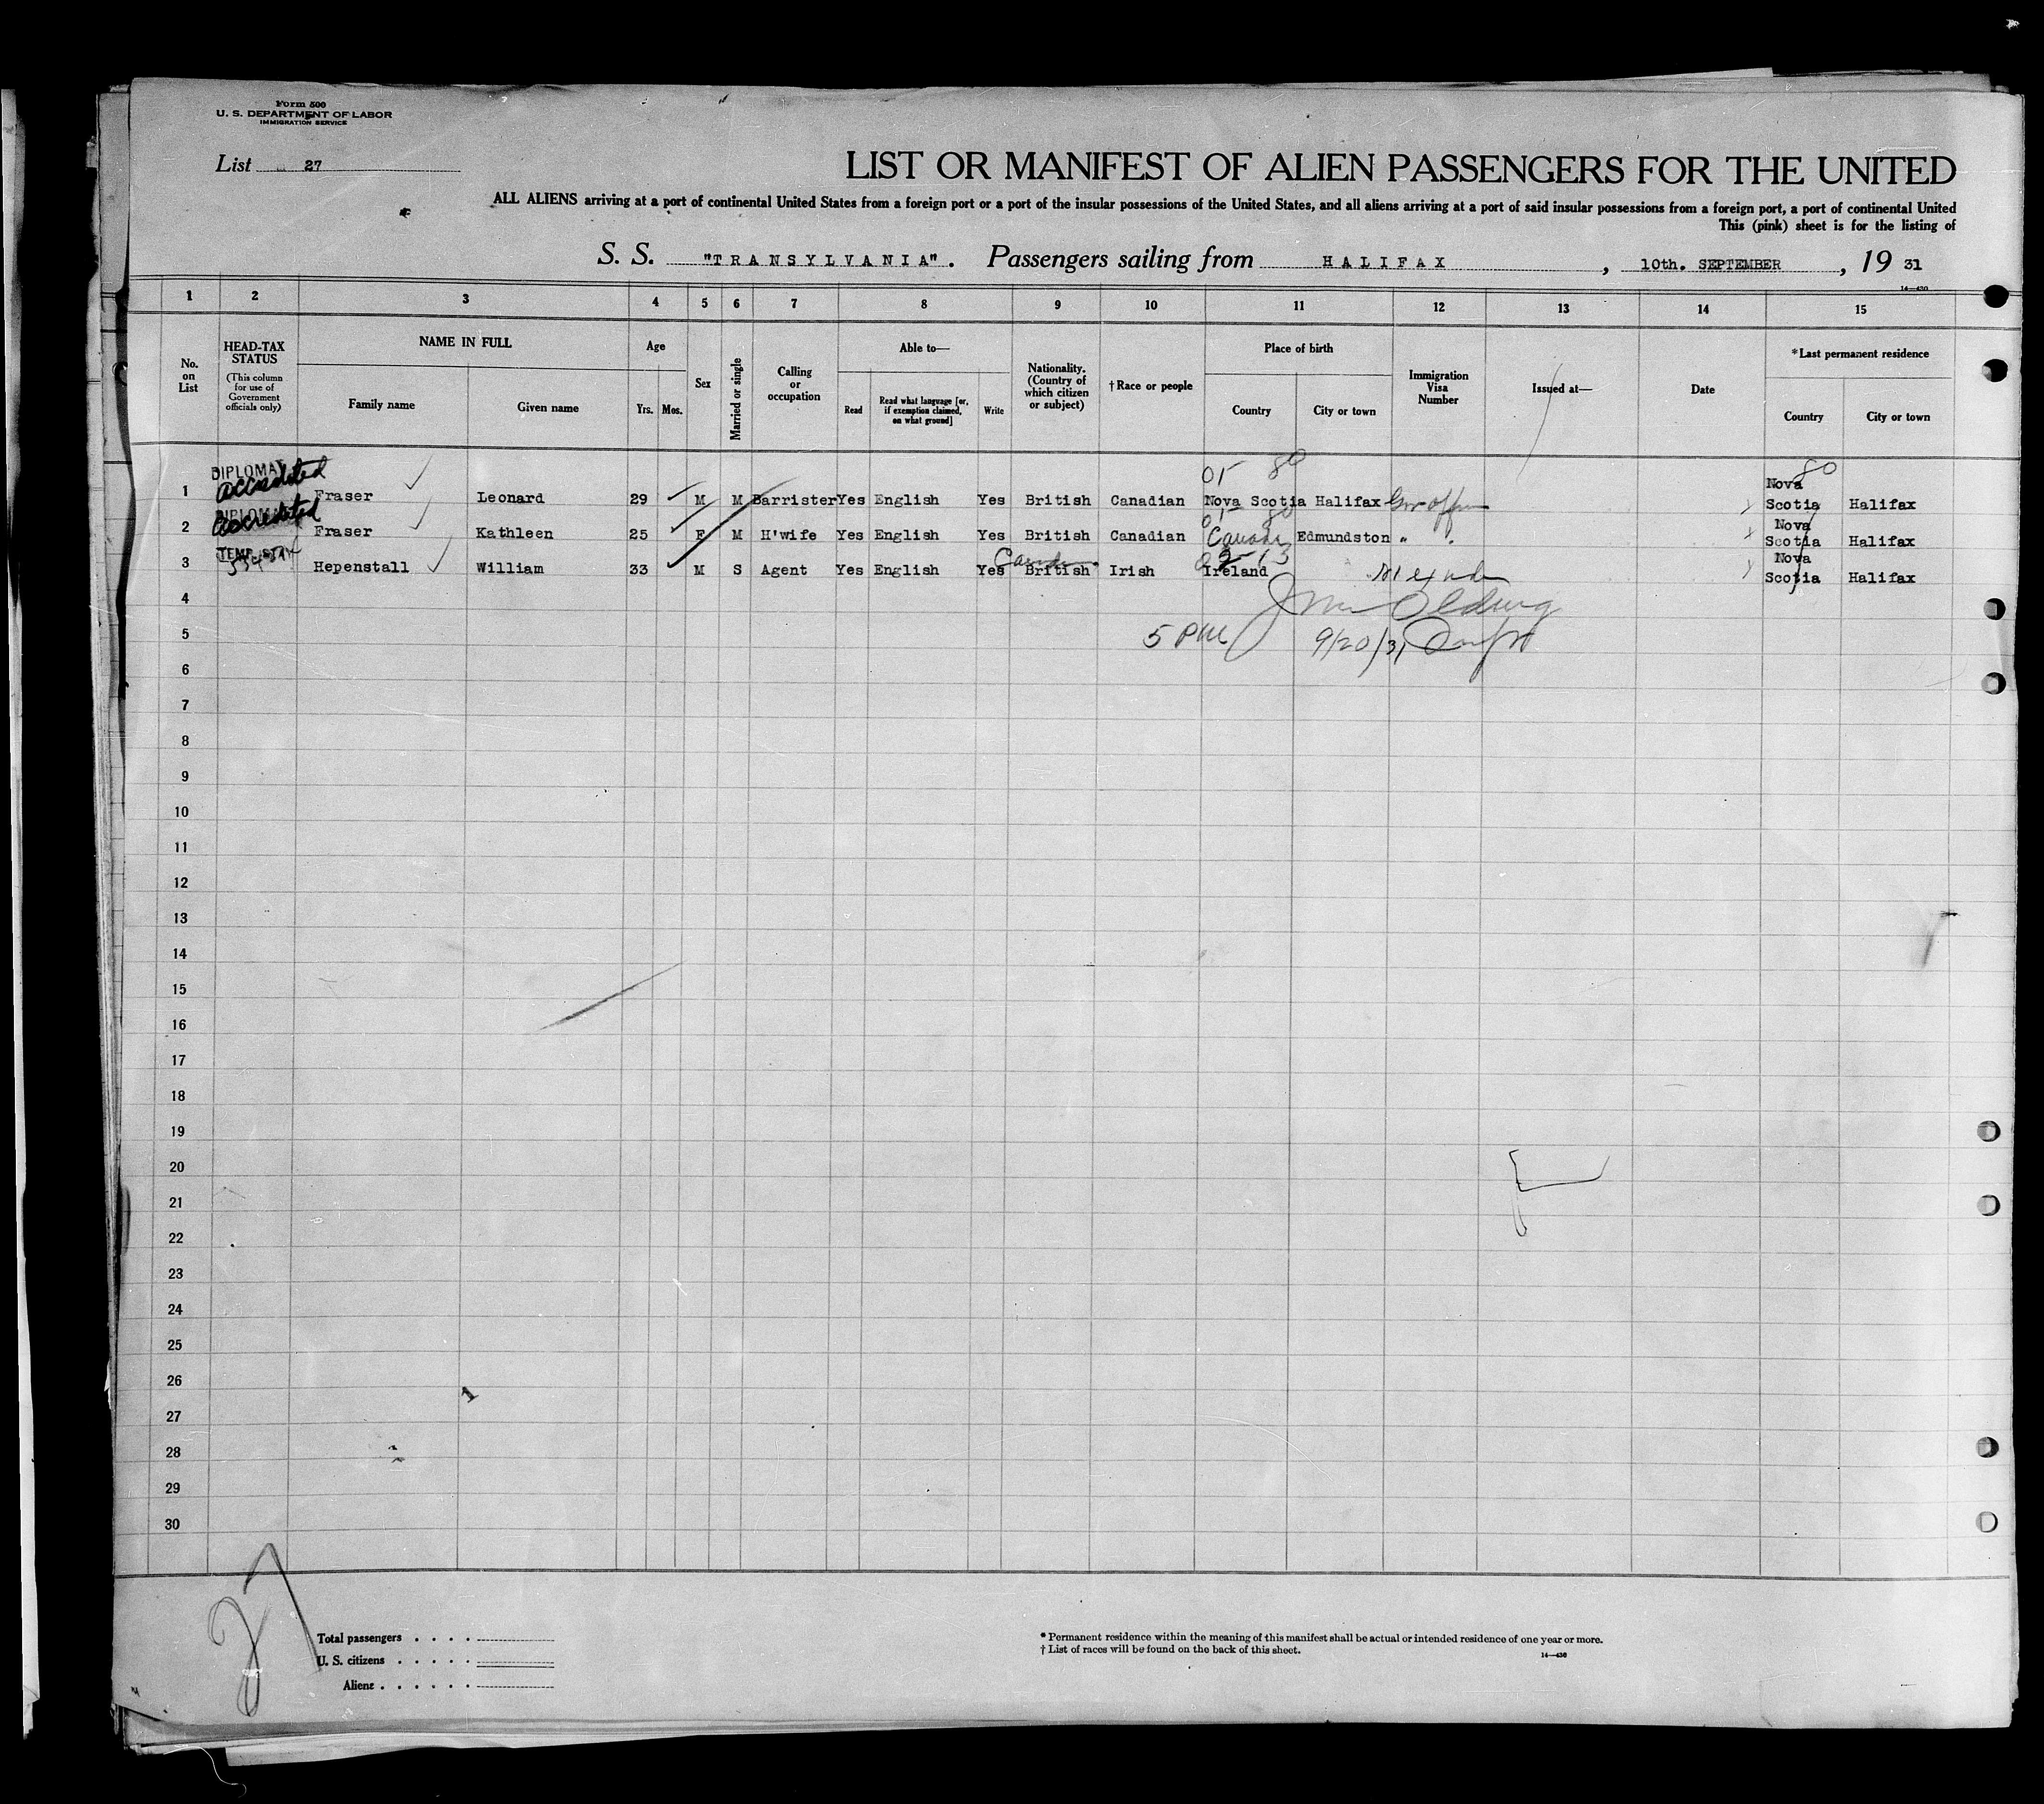 Form 500
U. S. DEPARTMENT OF LABOR
IMMIGRATION SERVICE
List 27
LIST OR MANIFEST OF ALIEN PASSENGERS FOR THE UNITED
ALL ALIENS arriving at a port of continental United States from a foreign port or a port of the insular possessions of the United States, and all aliens arriving at a port of said insular possessions from a foreign port, a port of continental United
This (pink) sheet is for the listing of
S. S. "TRANSYLVANIA". Passengers sailing from HALIFAX, 10th. SEPTEMBER, 19 31
14—430
1 2 3 4 5 6 7 8 9 10 11 12 13 14 15
No. on List
HEAD-TAX STATUS (This column for use of Government officials only)
NAME IN FULL
Family name Given name
Age
Yrs. Mos.
Sex
Married or single
Calling or occupation
Able to—
Read Read what language [or, if exemption claimed, on what ground] Write
Nationality. (Country of which citizen or subject)
†Race or people
Place of birth
Country City or town
Immigration Visa Number
Issued at—
Date
*Last permanent residence
Country City or town
01 80 80
1 DIPLOMAT accredited Fraser Leonard 29 M M Barrister Yes English Yes British Canadian Nova Scotia Halifax Nova Scotia Halifax
01 80
2 DIPLOMAT accredited Fraser Kathleen 25 F M H'wife Yes English Yes British Canadian Canada Edmundston " " Nova Scotia Halifax
3 TEMP. STAY Hepenstall William 33 M S Agent Yes English Yes British Irish Ireland Nova Scotia Halifax
4
5 5 PM 9/20/31
6
7
8
9
10
11
12
13
14
15
16
17
18
19
20
21
22
23
24
25
26
27
28
29
30
27
Total passengers . . . .
U. S. citizens . . . . .
Aliens . . . . . .
* Permanent residence within the meaning of this manifest shall be actual or intended residence of one year or more.
† List of races will be found on the back of this sheet.
14—430